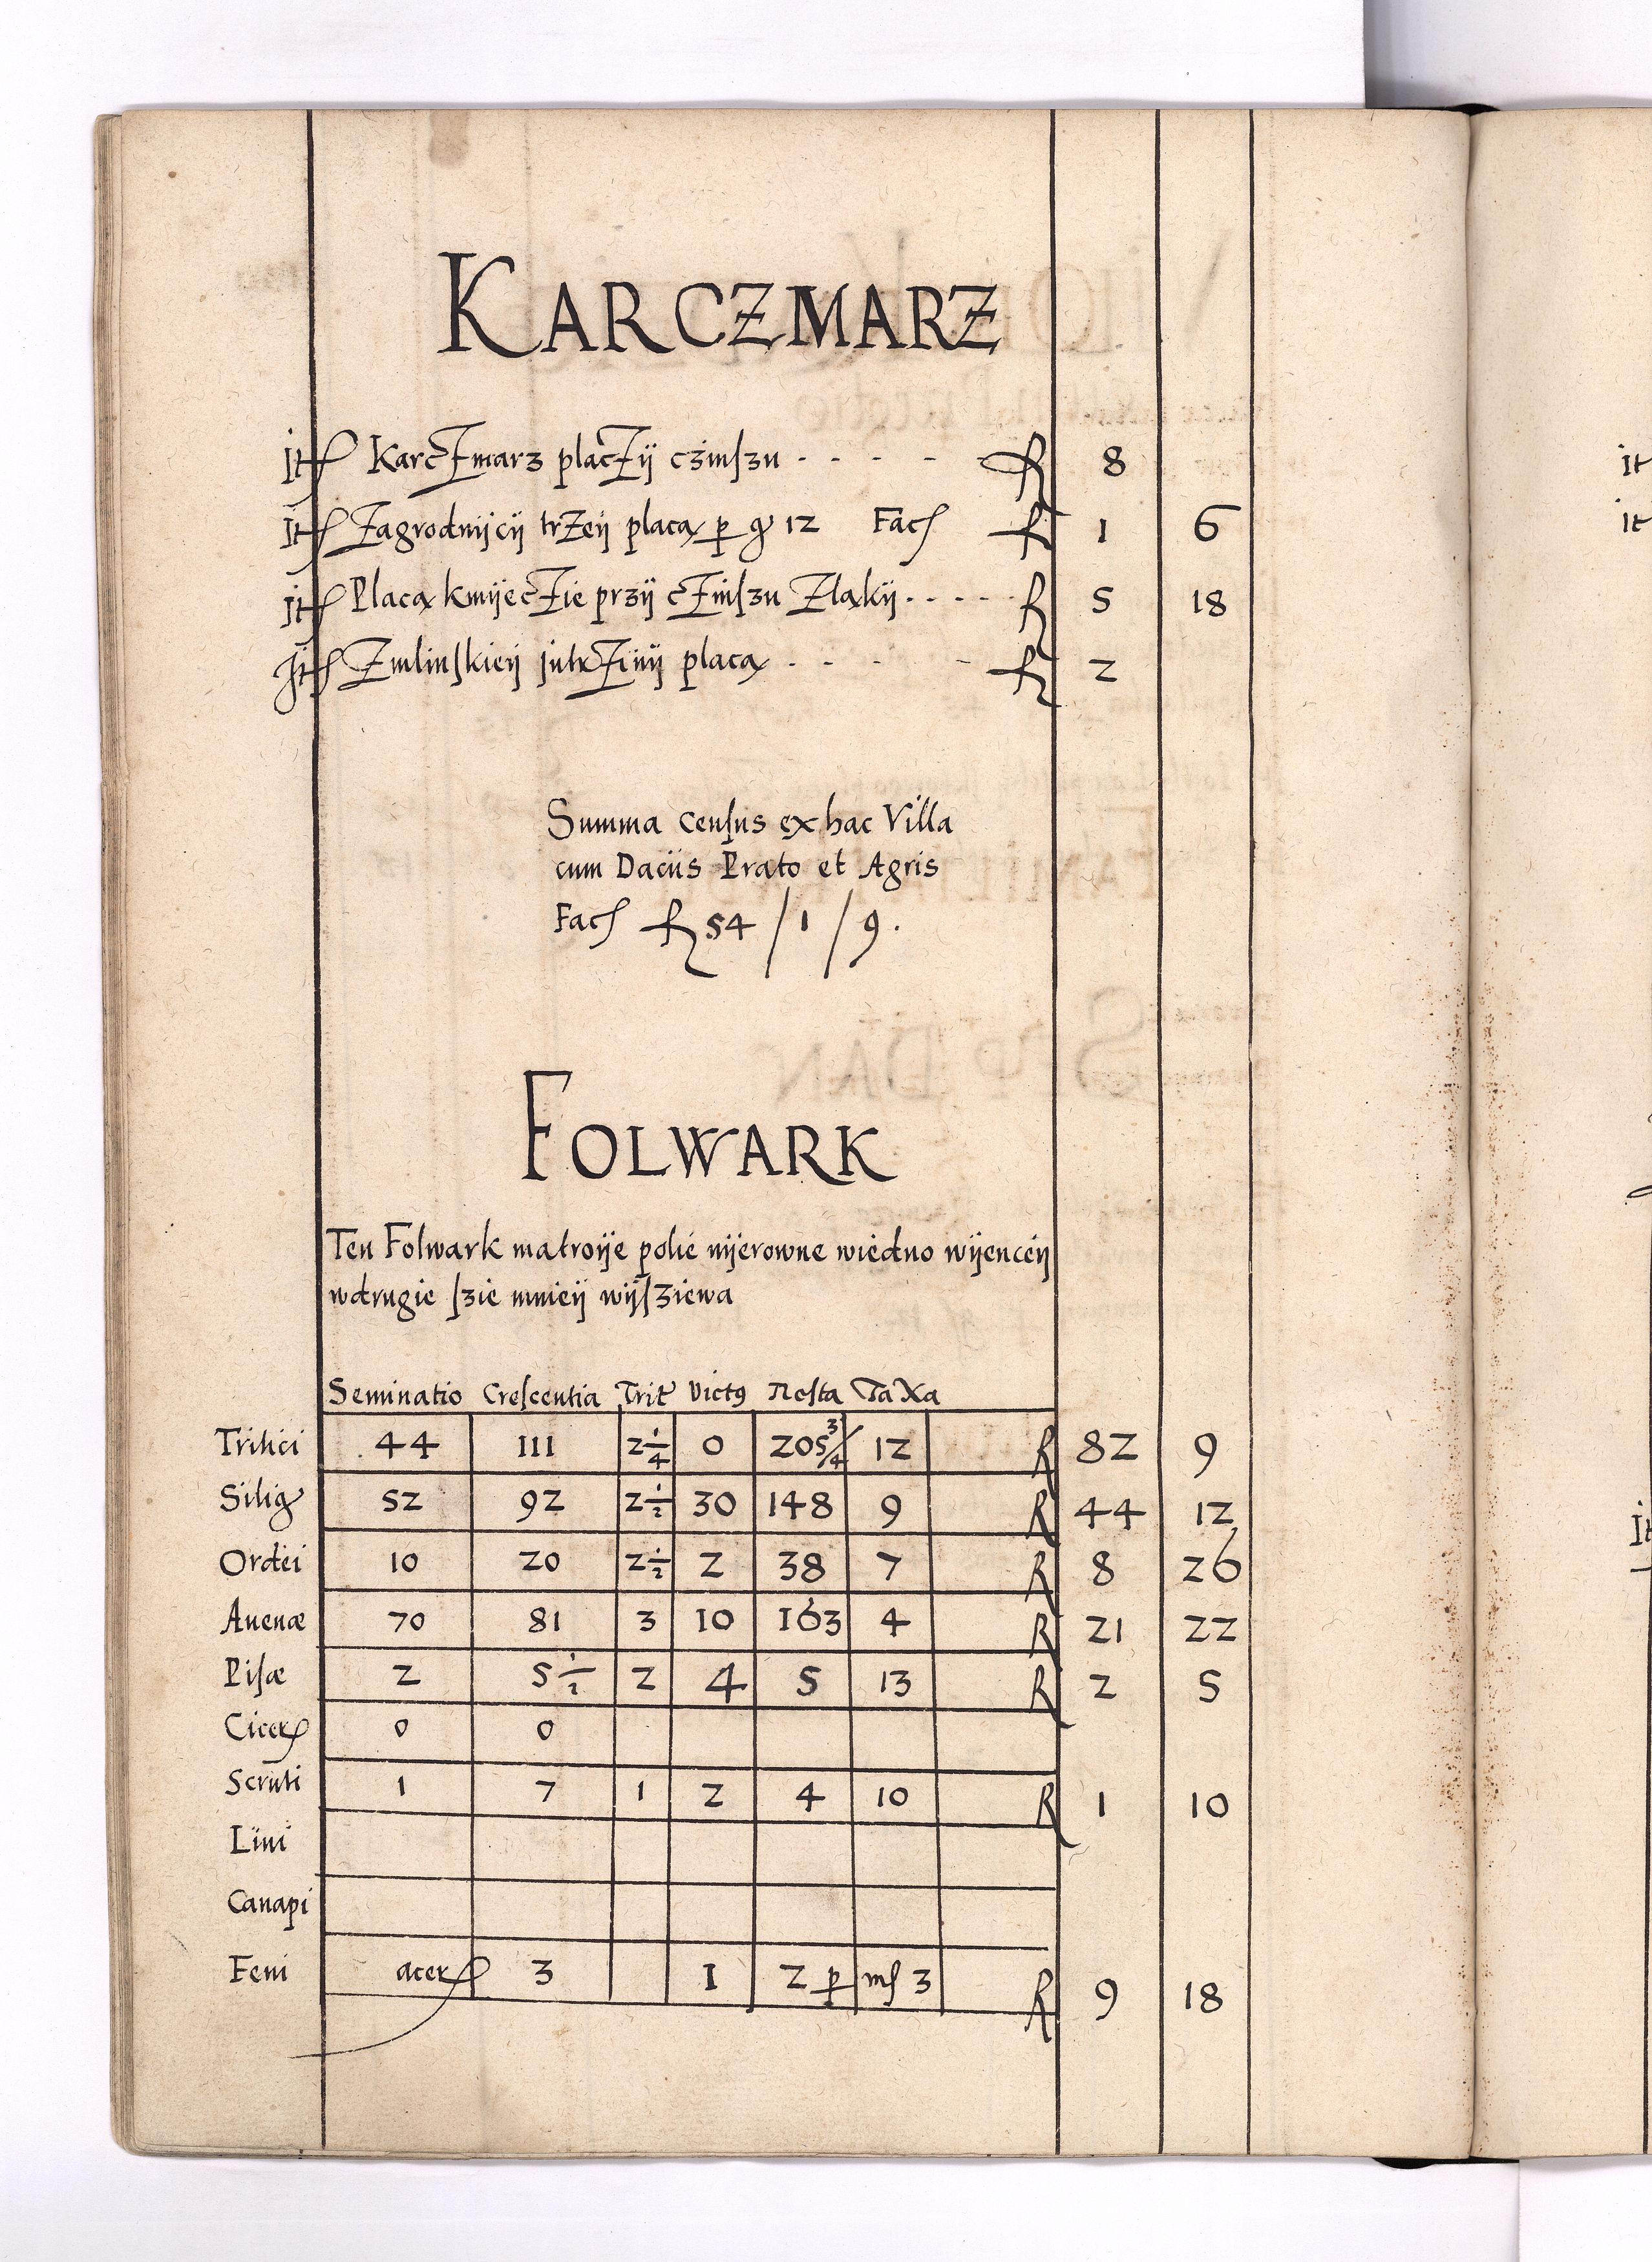 KARCZMARZ
Jtꝭ Karczmarz placzÿ czinſzu . . . . . . R 8
Itꝭ Zagrodnÿcÿ trzeÿ placą p gr 12 Facꝭ R 1 6
Jtꝭ Placą kmÿeczie przÿ czinſzu Zląkÿ . . . . . R 5 18
Jtꝭ Zmlinſkieÿ jutrzinÿ placą . . . . R 2
Summa Cenſus ex hac Villa
cum Daciis Prato et Agris
Facꝭ R 54 / 1 / 9 .
FOLWARK
Ten Folwark matroÿe polie nÿerowne wiedno wÿenceÿ
wdrugie ſzie mnieÿ wÿſziewa
Seminatio Creſcentia Trit Victꝰ Reſta Taxa
Tritici 44 111 2 1/4 0 205 3/4 12 R 82 9
Silig 52 92 2 1/2 30 148 9 R 44 12
Ordei 10 20 2 1/2 2 38 7 R 8 26
Auenæ 70 81 3 10 163 4 R 21 22
Piſæ 2 5 1/2 2 4 5 13 R 2 5
Cicerꝭ 0 0
Scruti 1 7 1 2 4 10 R 1 10
Lini
Canapi
Feni acerꝭ 3 1 2 p mꝭ 3 R 9 18
It
it
It